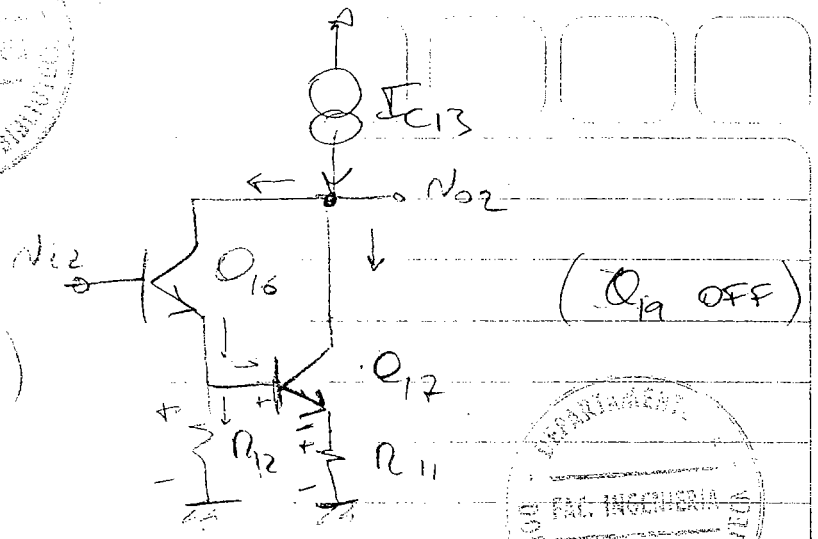 I_C13
No2
Ni2
Q16
(Q19 OFF)
Q17
+
+
+
R12
+
R11
-
-
DEPARTAMENT
FAC. INGENIERIA